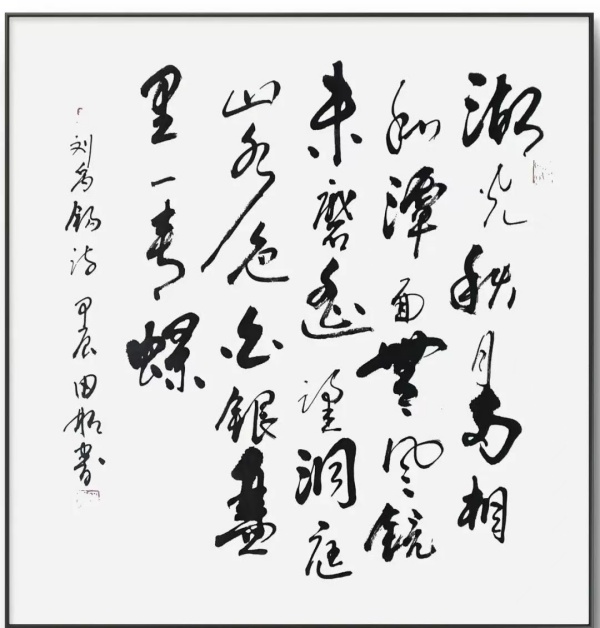 湖光秋月两相
和潭面無风镜
未磨遥望洞庭
山水色白银盘
里一青螺
刘禹锡诗 甲辰 田 书